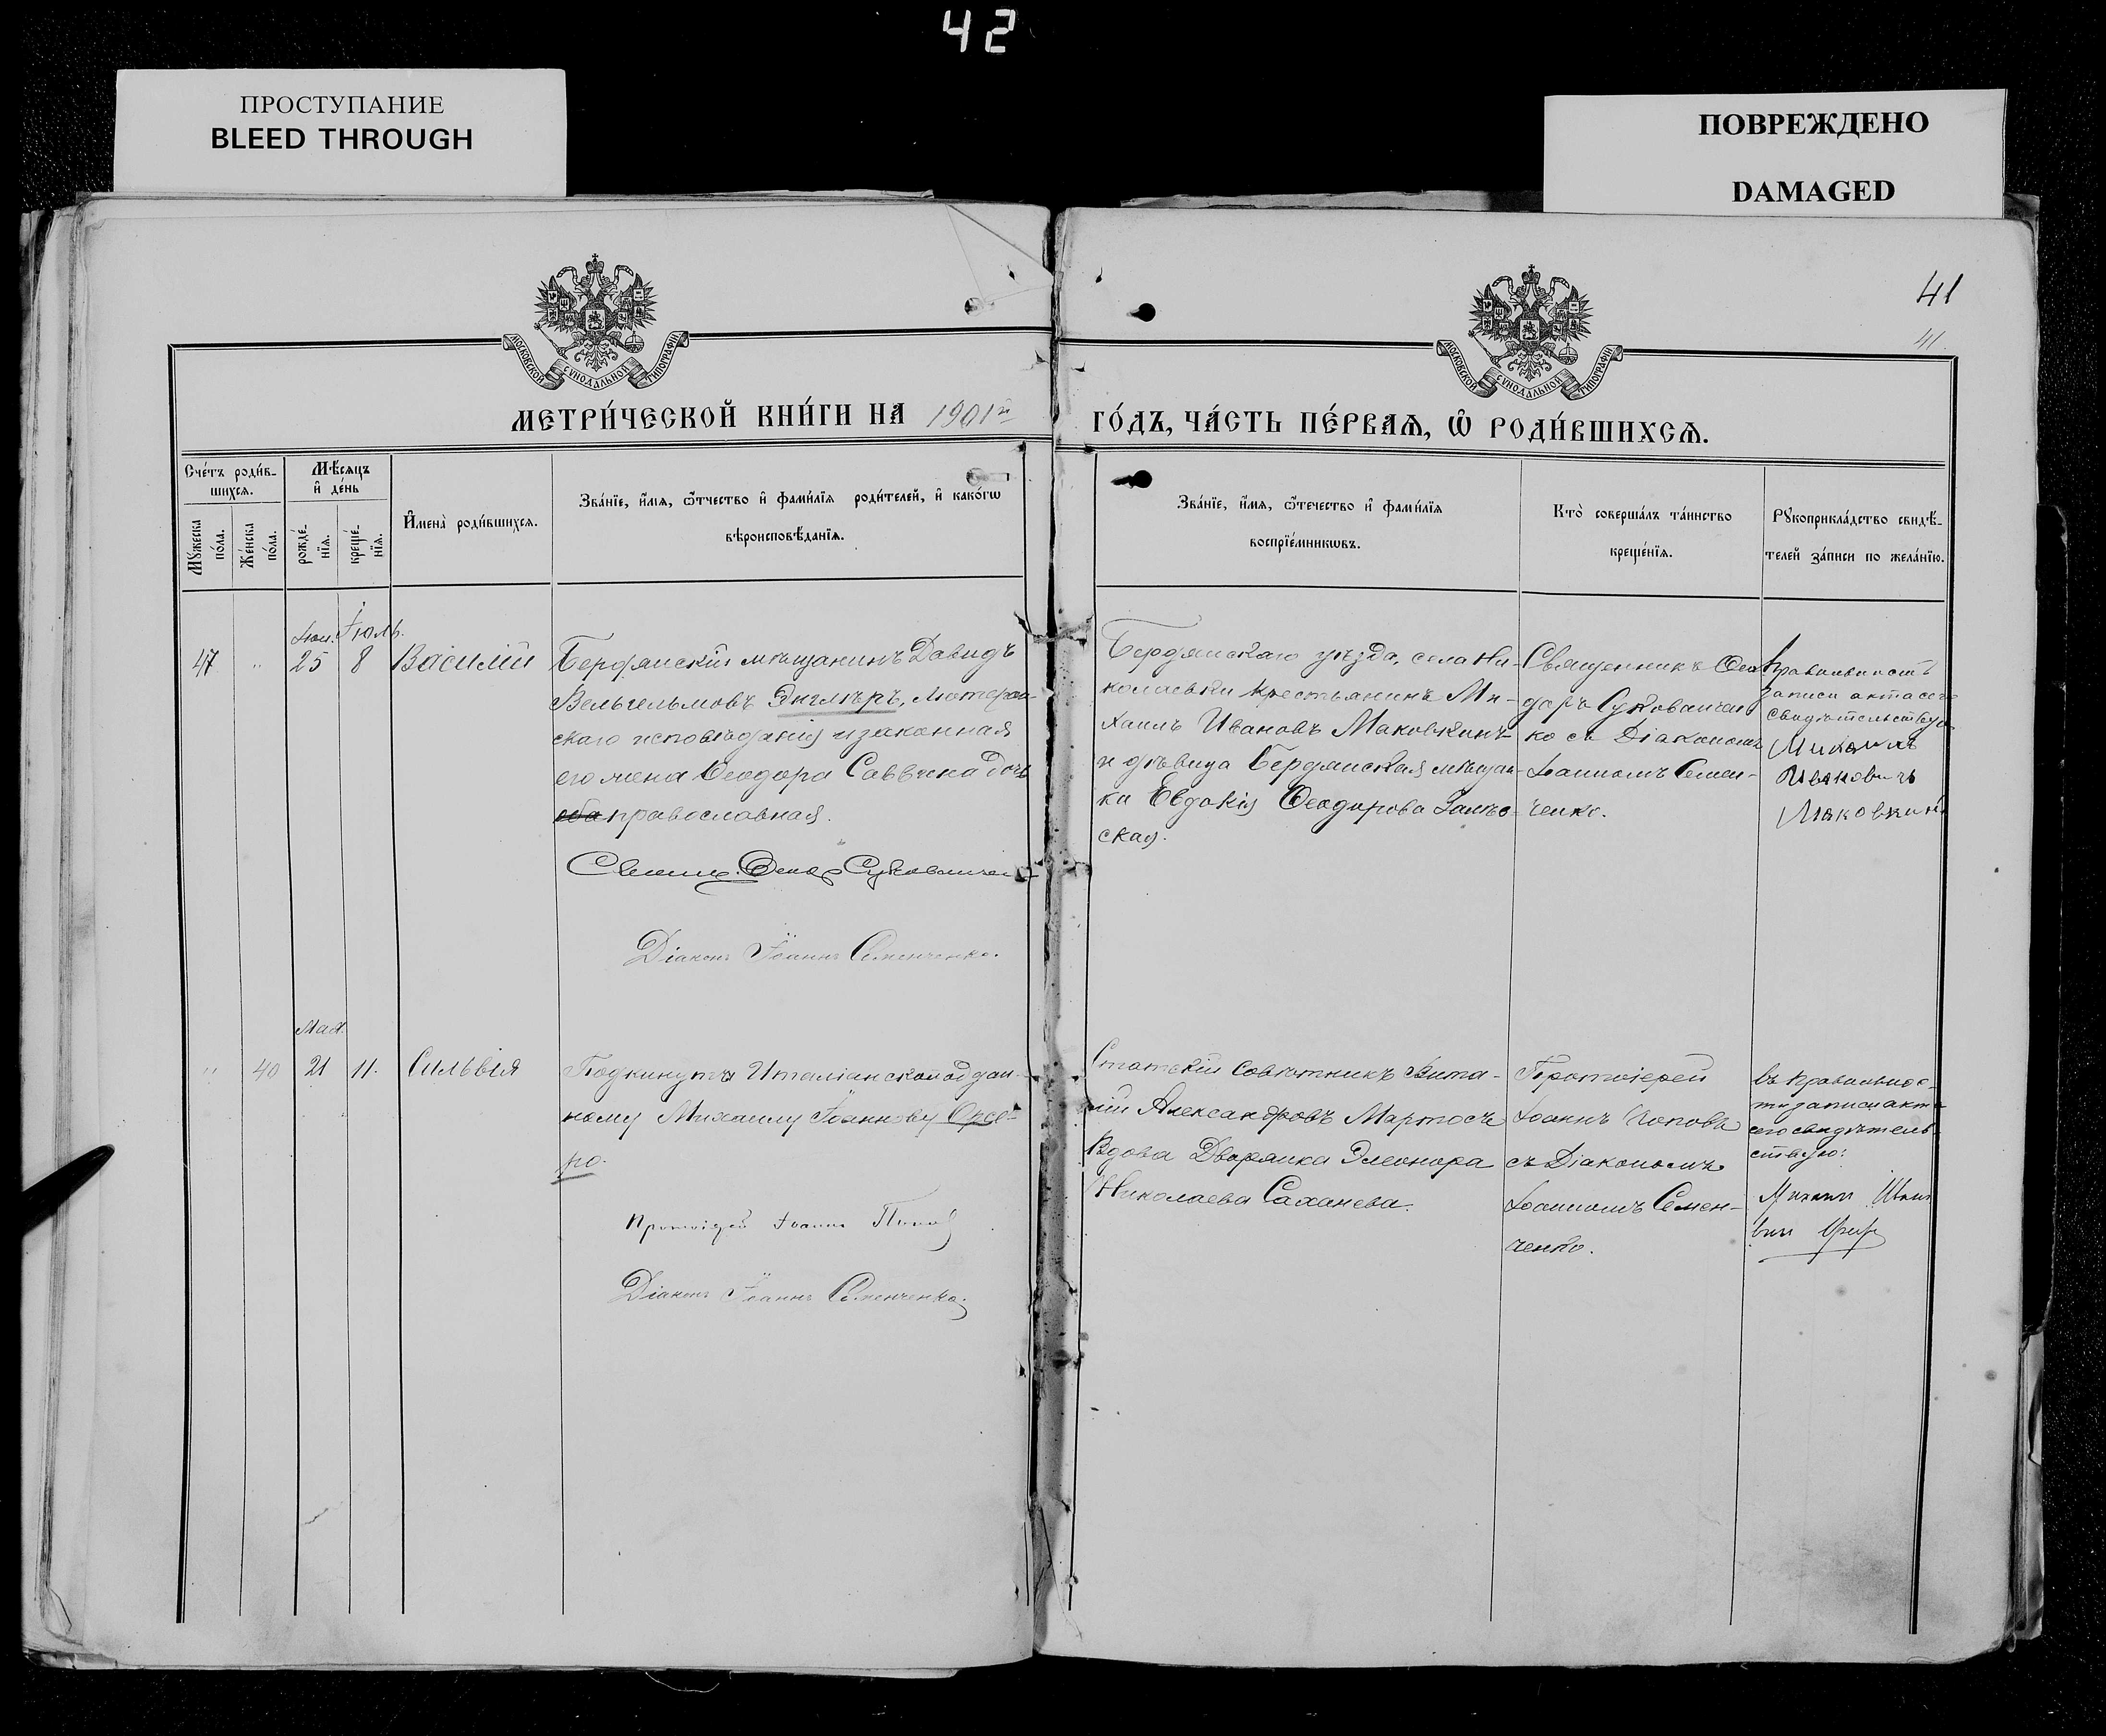 42
ПРОСТУПАНИЕ
BLEED THROUGH
ПОВРЕЖДЕНО
DAMAGED
41
41.
МОСКОВСКОЙ СѴНОДАЛЬНОЙ ТИПОГРАФІИ
МОСКОВСКОЙ СѴНОДАЛЬНОЙ ТИПОГРАФІИ
МЕТРИ́ЧЕСКОЙ КНИ́ГИ НА 1901й
ГО́ДЪ, ЧА́СТЬ ПЕ́РВАѦ, Ѽ РОДИ́ВШИХСѦ.
Сче́тъ роди́в-
шихсѧ.
Мѣ́сѧцъ
и҆ де́нь
Мꙋ́жеска
по́ла.
Же́нска
по́ла.
рожде́-
нїѧ.
креще́-
нїѧ.
И҆мена̀ роди́вшихсѧ.
Зва́нїе, и҆́мѧ, ѻ҆́тчество и҆ фами́лїѧ роди́телей, и҆ како́гѡ
вѣроисповѣ́данїѧ.
Зва́нїе, и҆́мѧ, ѻ҆те́чество и҆ фами́лїѧ
воспрїе́мникѡвъ.
Кто̀ соверша́лъ та́инство
креще́нїѧ.
Рꙋкоприкла́дство свидѣ́-
телей за́писи по жела́нїю.
Іюн. Іюль.
47 " 25 8 Василій
Бердянскій мѣщанинъ Давидъ
Вельгельмовъ Энглеръ, лютеран-
скаго исповѣданія и законная
его жена Ѳеодора Саввична
оба православная.
Діаконъ Іоаннъ Семенченко.
Бердянскаго уѣзда, села Ни-
колаевки крестьянинъ Ми-
хаилъ Ивановъ Маковкинъ
и дѣвица Бердянская мѣщан-
ка Евдокія Ѳеодорова
ская.
Священникъ Ѳео-
доръ Суковаичен
ко съ Діакономъ
Іоанномъ Семен-
ченко.
Правильность
записи акта сего
свидѣтельствую
Михаилъ
Ивановичъ
Маковкинъ
Мая.
" 40 21 11. Сильвія
Подкинута Италіанскоподдан-
ному Михаилу Іоаннову Орсе-
ро.
Протоіерей Іоаннъ Поповъ
Діаконъ Іоаннъ Семенченко.
Статскій Совѣтникъ Вита-
лій Александровъ Мартосъ
Вдова Дворянка Элеонора
Николаева Саханева.
Протоіерей
Іоаннъ Поповъ
съ Діакономъ
Іоанномъ Семен-
ченко.
въ правильнос-
ти записи акта
сего свидѣтель-
ствую:
Михаилъ Ивано
вичъ